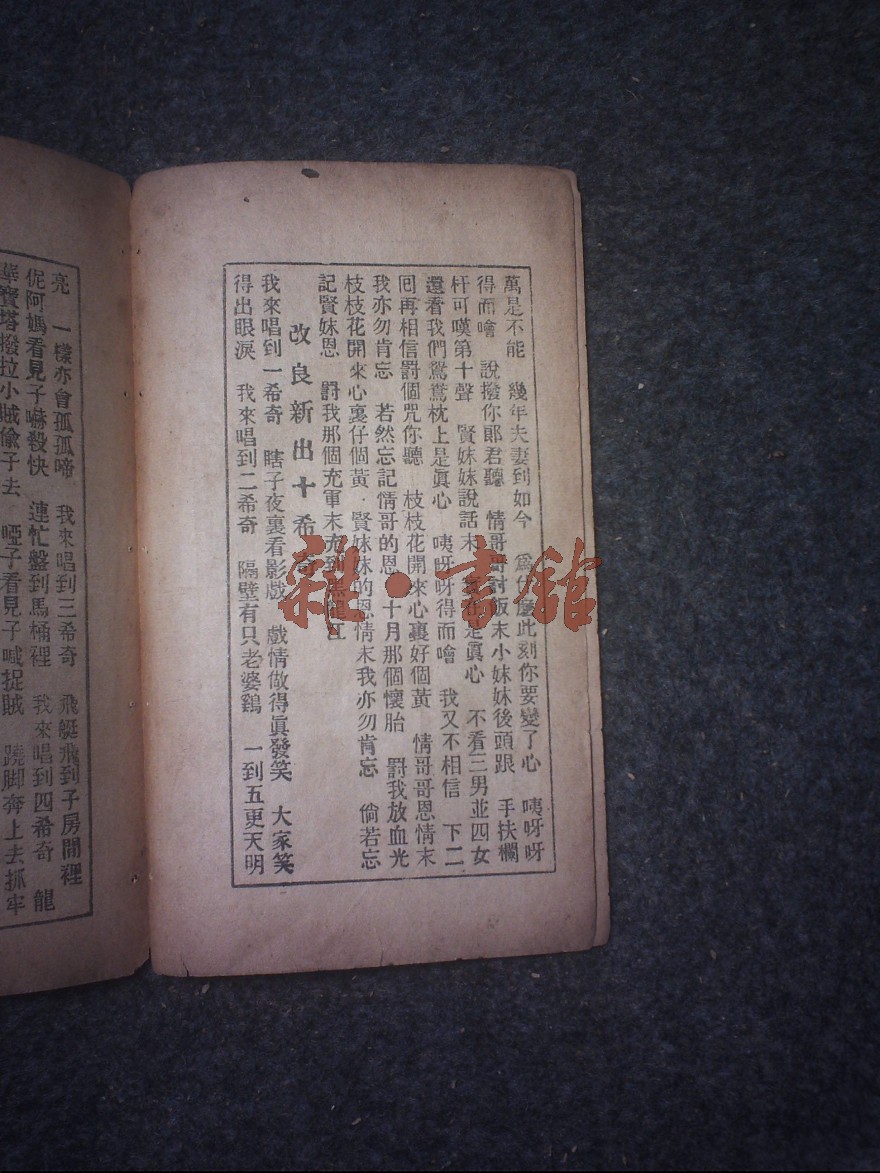 萬是不能　幾年夫妻到如今　爲什麽此刻你要變了心　咦呀呀
得而噲　說撥你郞君聽　情哥哥討飯末小妹妹後頭跟　手扶欄
杆可嘆第十聲　賢妹妹說話末　實在是眞心　不看三男並四女
還看我們鴛鴦枕上是眞心　咦呀呀得而噲　我又不相信　下二
囘再相信罰個咒你聽　枝枝花開來心裏好個黃　情哥哥恩情末
我亦勿肯忘　若然忘記情哥的恩　十月那個懷胎　罰我放血光
枝枝花開來心裏仔個黃．賢妹妹的恩情末我亦勿肯忘　倘若忘
記賢妹恩　罰我那個充軍末充到黑龍江
改良新出十希奇
我來唱到一希奇　瞎子夜裏看影戲　戲情做得眞發笑　大家笑
得出眼淚　我來唱到二希奇　隔壁有只老婆鷄　一到五更天明
亮　一樣亦會孤孤啼　我來唱到三希奇　飛艇飛到子房間裡
伲阿媽看見子嚇殺快　連忙盤到馬桶裡　我來唱到四希奇　龍
華寶塔撥拉小賊偸子去　啞子看見子喊捉賊　蹺脚奔上去抓牢
雜·書館